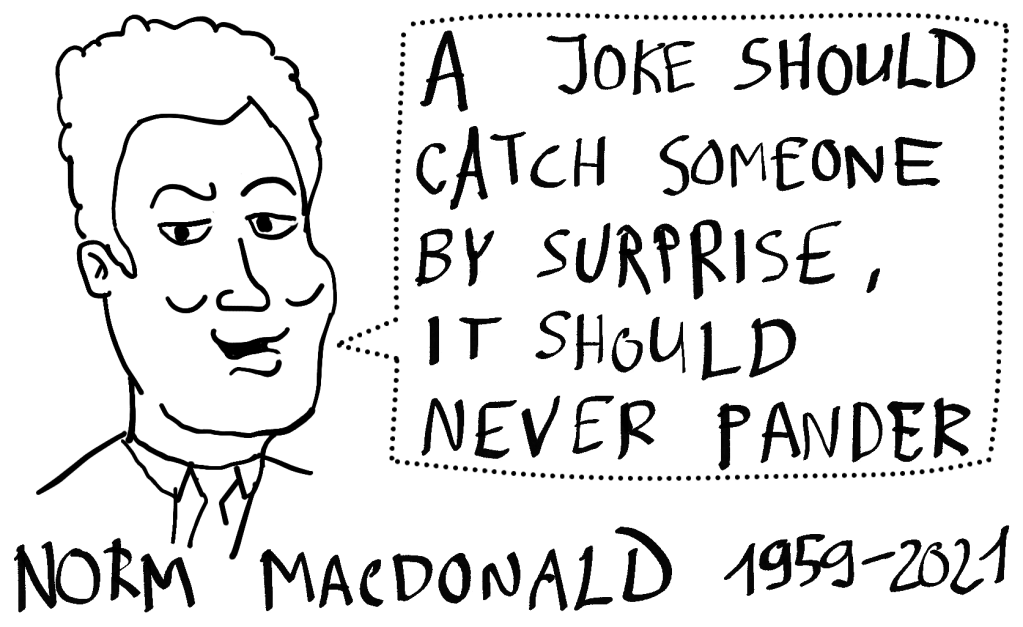 A JOKE SHOULD
CATCH SOMEONE
BY SURPRISE,
IT SHOULD
NEVER PANDER
NORM MACDONALD 1959-2021